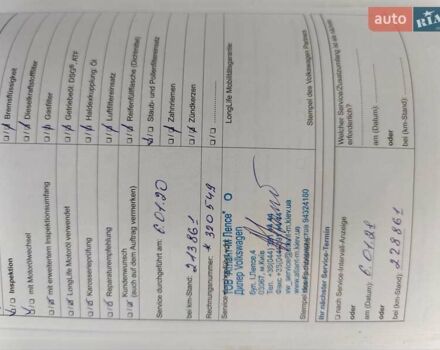 auto RIA
Inspektion
mit Motorölwechsel
mit erweitertem Inspektionsumfang
LongLife Motoröl verwendet
Karosserieprüfung
Reparaturempfehlung
Kundenwunsch
(auch auf dem Auftrag vermerken)
Bremsflüssigkeit
Dieselkraftstofffilter
Gasfilter
Getriebeöl: DSG®, ATF
Haldexkupplung: Öl
Luftfiltereinsatz
Reifenfüllflasche (Dichtmittel)
Staub- und Pollenfiltereinsatz
Zahnriemen
Zündkerzen
Service durchgeführt am: 6.01.20
bei km-Stand: 213861
Rechnungsnummer: * 390549
LongLife Mobilitätsgarantie
ТОВ "Атлант-М Лепсе"
Дилер Volkswagen
Бул. І.Лепсе,4
03067, м.Київ
Stempel des Volkswagen Partners
Ihr nächster Service-Termin
nach Service-Intervall-Anzeige
oder
am (Datum): 6.01.21
oder
bei (km-Stand): 228861
Welcher Service/Zusatzumfang ist als nächstes
erforderlich?
am (Datum):
oder
bei (km-Stand):